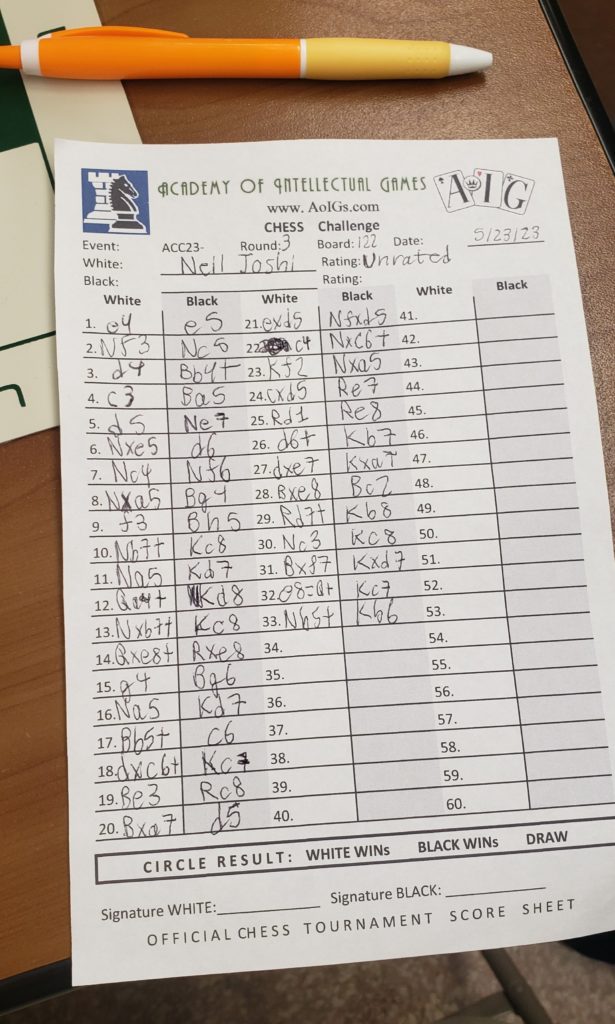 ACADEMY OF INTELLECTUAL GAMES
A I G
www. AoIGs.com
CHESS Challenge
Event: ACC23- Round: 3 Board: 122 Date: 5/23/23
White: Neil Joshi Rating: Unrated
Black: Rating:
White Black White Black White Black
1. e4 e5 21. exd5 Nfxd5 41.
2. Nf3 Nc6 22. c4 Nxc6+ 42.
3. d4 Bb4+ 23. Kf2 Nxa5 43.
4. c3 Ba5 24. cxd5 Re7 44.
5. d5 Ne7 25. Rd1 Re8 45.
6. Nxe5 d6 26. d6+ Kb7 46.
7. Nc4 Nf6 27. dxe7 Kxa7 47.
8. Nxa5 Bg4 28. Bxe8 Bc2 48.
9. f3 Bh5 29. Rd7+ Kb8 49.
10. Nb7+ Kc8 30. Nc3 Kc8 50.
11. Na5 Kd7 31. Bxf7 Kxd7 51.
12. Qa4+ Kd8 32. e8=Q+ Kc7 52.
13. Nxb7+ Kc8 33. Nb5+ Kb6 53.
14. Qxe8+ Rxe8 34. 54.
15. g4 Bg6 35. 55.
16. Na5 Kd7 36. 56.
17. Bb5+ c6 37. 57.
18. dxc6+ Kc7 38. 58.
19. Be3 Rc8 39. 59.
20. Bxa7 d5 40. 60.
CIRCLE RESULT: WHITE WINs BLACK WINs DRAW
Signature WHITE: Signature BLACK:
OFFICIAL CHESS TOURNAMENT SCORE SHEET